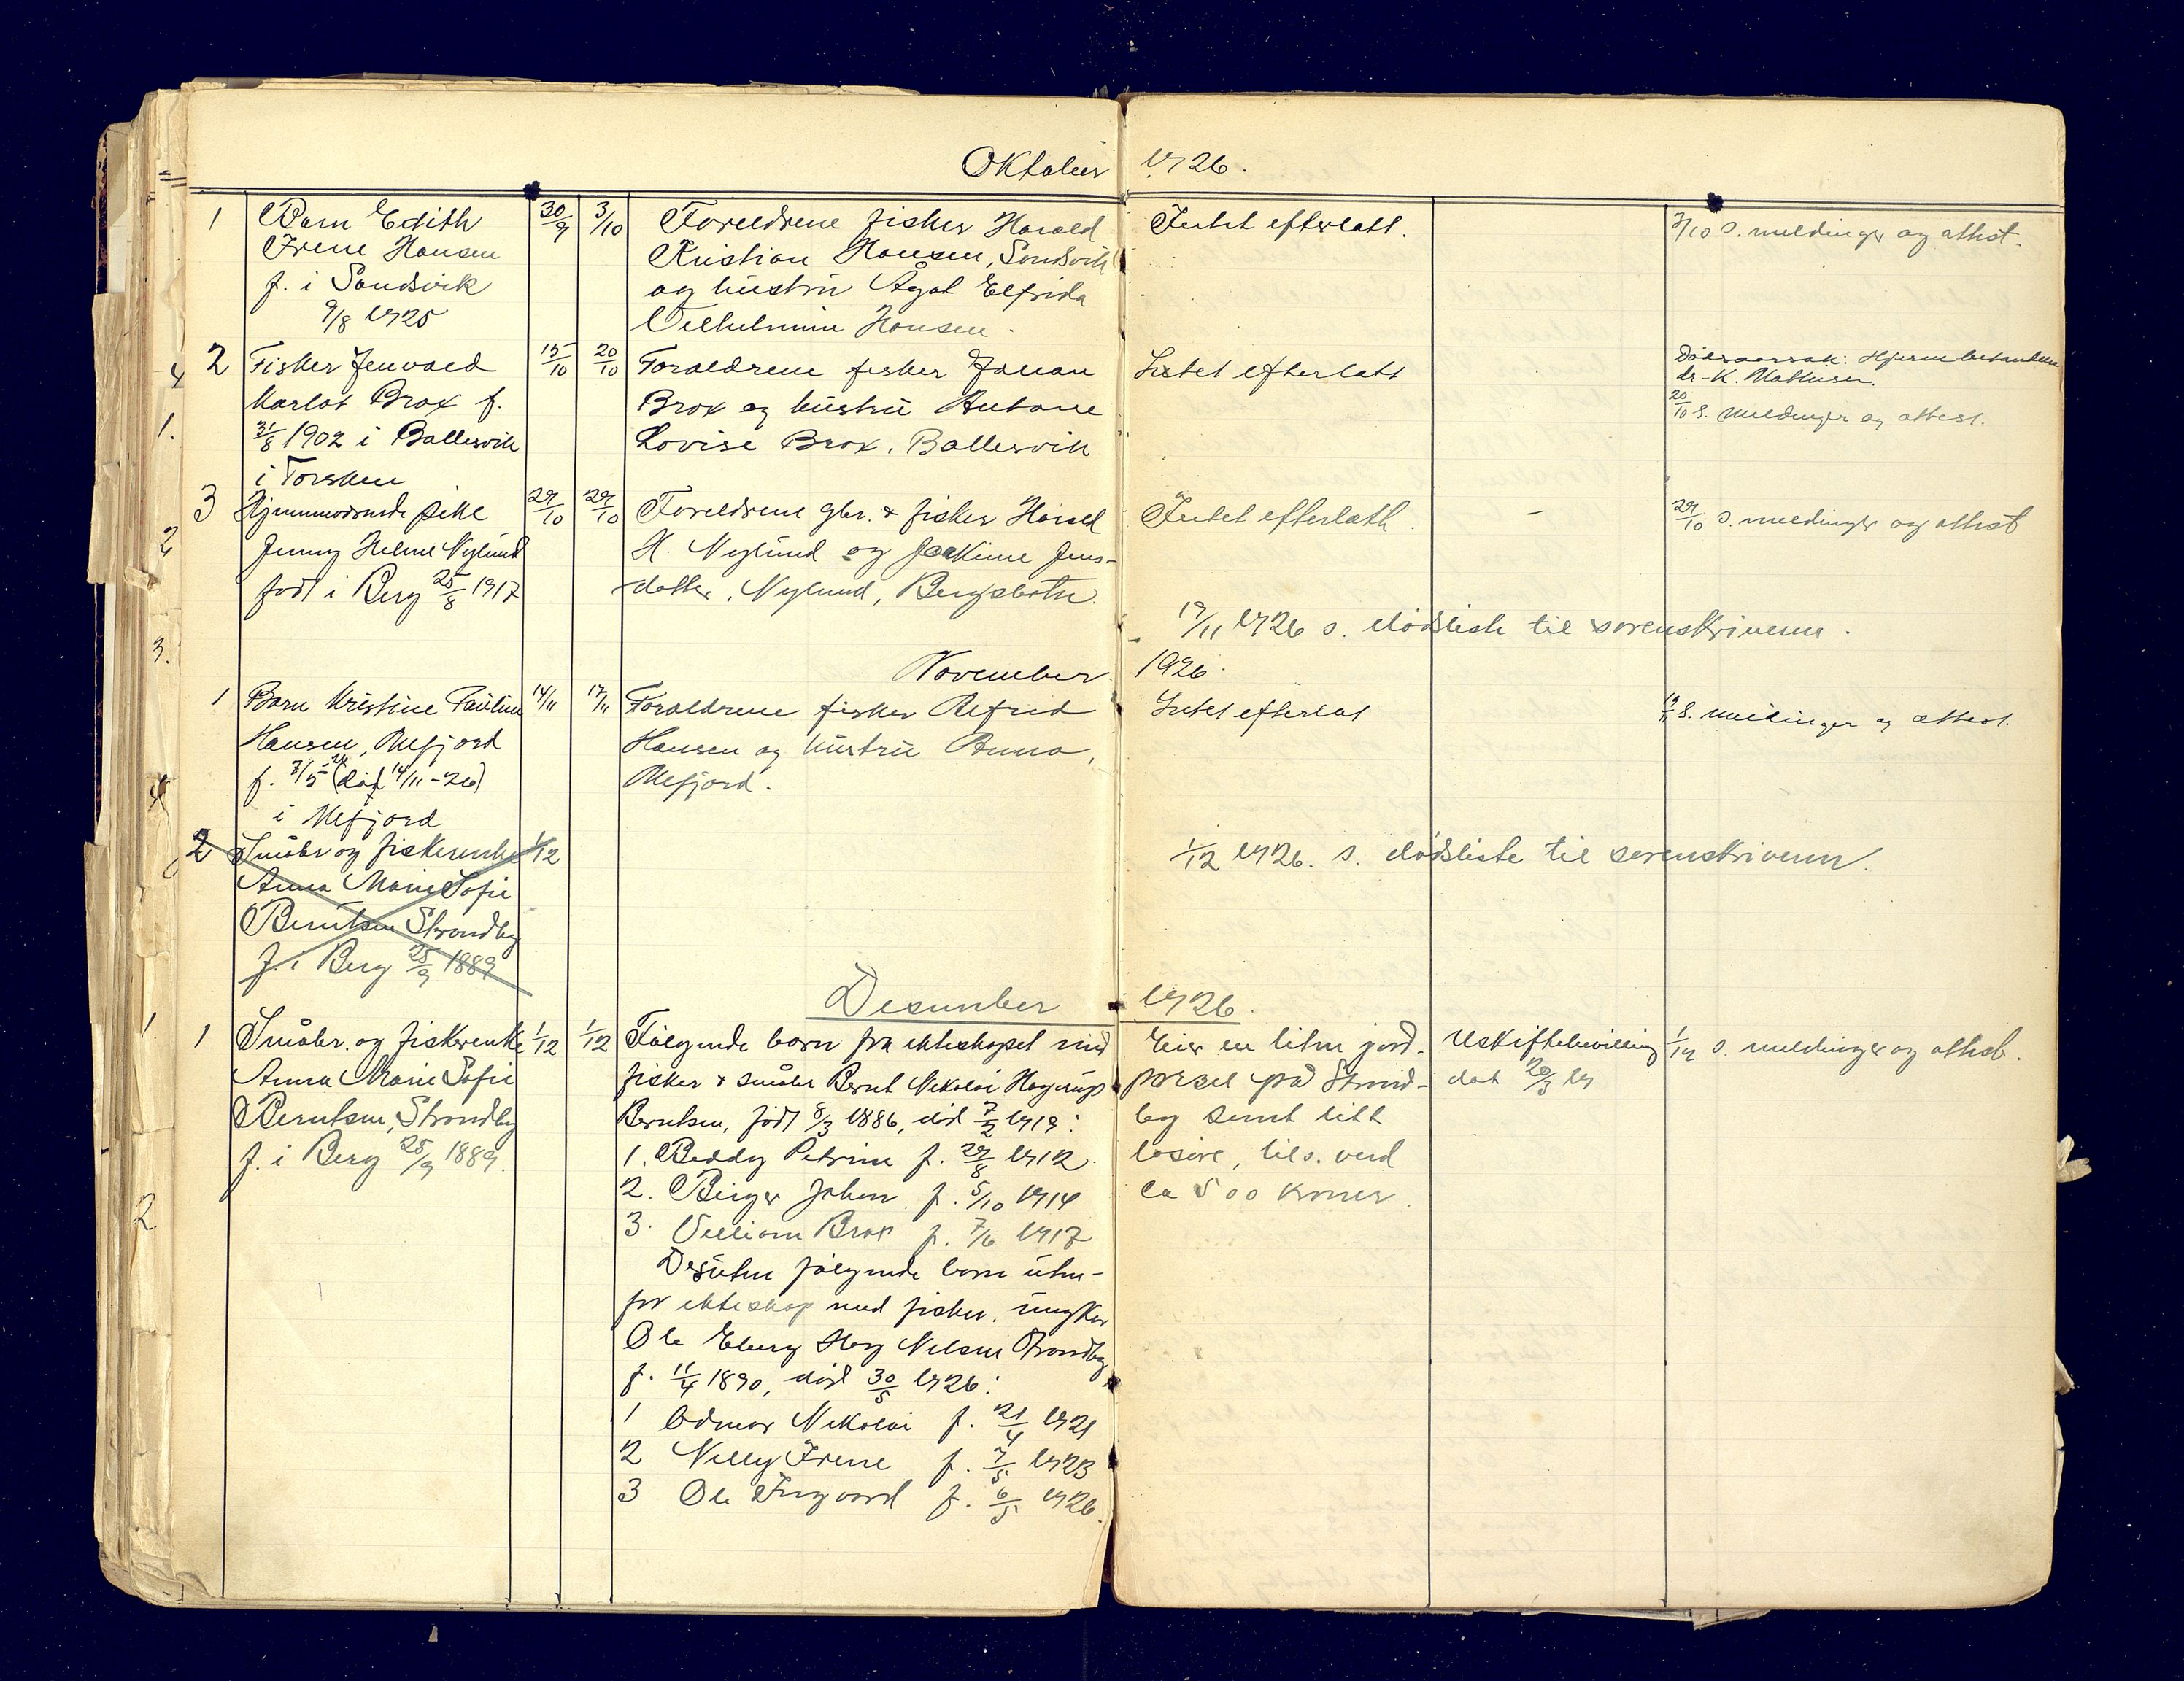 Oktober 1926.
1 Barn Edith 30/9 3/10 Foreldrene fisker Harald Intet efterlatt. 3/10 s. meldinger og attest.
Irene Hansen Kristian Hansen, Sandsvik
f. i Sandsvik og hustru Ågot Elfrida
9/8 1925 Vilhelmine Hansen.
2 Fisker Jenvald 15/10 20/10 Foraldrene fisker Johan Intet efterlatt Dødsaarsak: Hjerne
Karlot Brox f. Brox og hustru Antone dr. K. Mathisen.
31/8 1902 i Ballesvik Lovise Brox. Ballesvik 20/10 S. meldinger og attest.
i Torsken
3 Hjemmeværende pike 29/10 29/10 Foreldrene gbr. & fisker Harald Intet efterlatt. - 29/10 s. meldinger og attest
Jenny Helene Nylund H. Nylund og Joakime Jens-
født i Berg 25/8 1917 datter, Nylund, Bergsbotn.
19/11 1926 s. dødsliste til sorenskriveren.
November 1926.
1 Barn Kristine Pauline 14/11 17/11 Foraldrene fisker Alfred Intet efterlat S. meldinger og attest.
Hansen, Mefjord Hansen og hustru Anna,
f. 7/5-26 (død 14/11-26) Mefjord.
i Mefjord
2 Småbr og fiskerenke 1/12 1/12 1926. s. dødsliste til sorenskriveren.
Anna Marie Sofie
Berntsen Strandby
f. i Berg 25/9 1889
Desember 1926.
1 Småbr. og fiskerenke 1/12 1/12 Følgende barn fra ekteskapet med Eier en liten jord- Uskiftebevilling 1/12 s. meldinger og attest.
Anna Marie Sofie fisker & småbr Bernt Nikolai Hagerup parsel på Strand- dat 20/3 19
Berntsen, Strandby Berntsen, født 8/3 1886, død 7/2 1919: by samt litt
f. i Berg 25/9 1889. 1. Beddy Petrine f. 29/8 1912. løsøre, tils. verd
2. Birger Johan f. 5/10 1914 ca 500 kroner.
3. Villiam Brox f. 7/6 1917
Desuten følgende barn uten-
for ekteskap med fisker, ungkar
Ole Eberg Hog Nilsen Strandby
f. 11/4 1890, død 30/5 1926:
1 Edmar Nikolai f. 21/4 1921
2 Nelly Irene f. 7/5 1923
3 Ole Ingvard f. 6/5 1926.